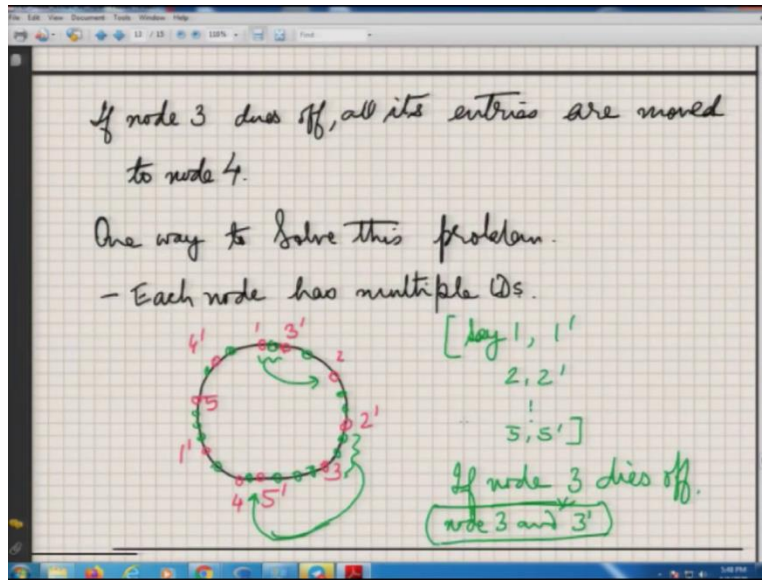 File Edit View Document Tools Window Help
13 / 15 118% Find
If node 3 dies off, all its entries are moved
to node 4.
One way to Solve this problem.
- Each node has multiple IDs.
[say 1, 1'
2, 2'
5, 5']
4' 1 3'
2
5
2'
1'
3
4 5'
If node 3 dies off.
node 3 and 3'
5:48 PM